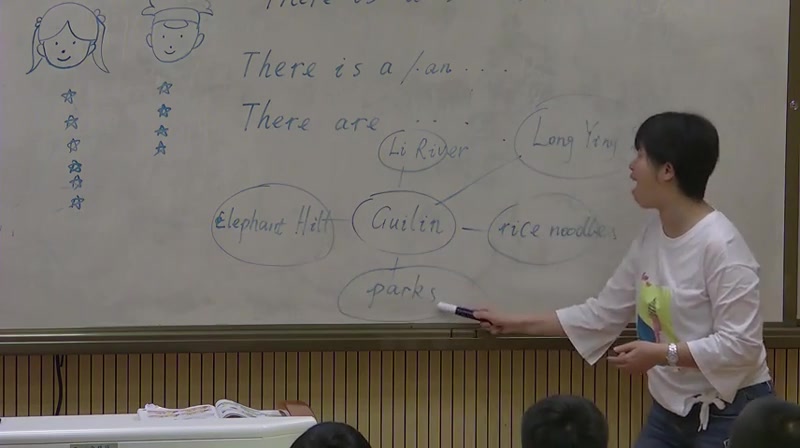 There is a
There is a / an . . .
There are . . .
Li River
Long Ying
Elephant Hill
Guilin
rice noodles
parks